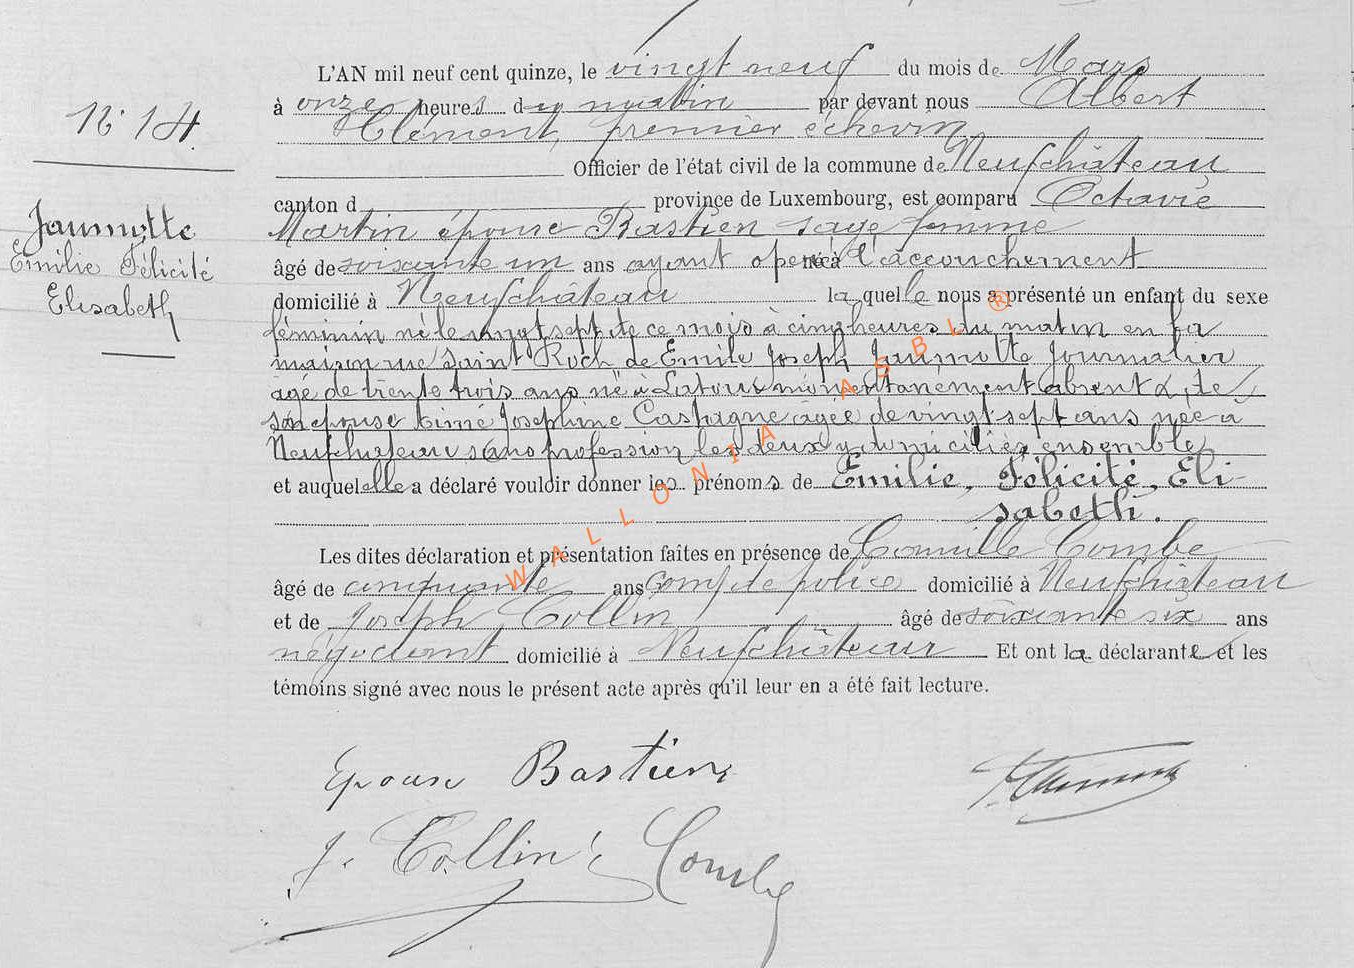 L'AN mil neuf cent quinze, le vingt neuf du mois de Mars
à onze heures du matin par devant nous Albert
Clément, premier échevin
Officier de l'état civil de la commune de Neufchâteau
canton d province de Luxembourg, est comparu Octavie
Martin épouse Bastien sage femme
âgé de soixante un ans ayant opéré à l'accouchement
domicilié à Neufchâteau laquelle nous a présenté un enfant du sexe
féminin né le vingt sept de ce mois à cinq heures du matin en sa
maison rue Saint Roch de Emile Joseph Jaumotte journalier
âgé de trente trois ans né à Latour momentanément absent & de
son épouse Aimé Josephine Caspagne âgée de vingt sept ans née à
Neufchâteau sans profession les deux y domiciliés ensemble
et auquel elle a déclaré vouloir donner les prénoms de Emilie, Félicité, Eli
sabeth.
Les dites déclaration et présentation faites en présence de Camille Combe
âgé de cinquante ans com de police domicilié à Neufchâteau
et de Joseph Collin âgé de soixante six ans
négociant domicilié à Neufchâteau Et ont la déclarante et les
témoins signé avec nous le présent acte après qu'il leur en a été fait lecture.
N° 14.
Jaumotte
Emilie Félicité
Elisabeth
Epouse Bastien
J. Collin Combe
WALLONIA ASBL ®